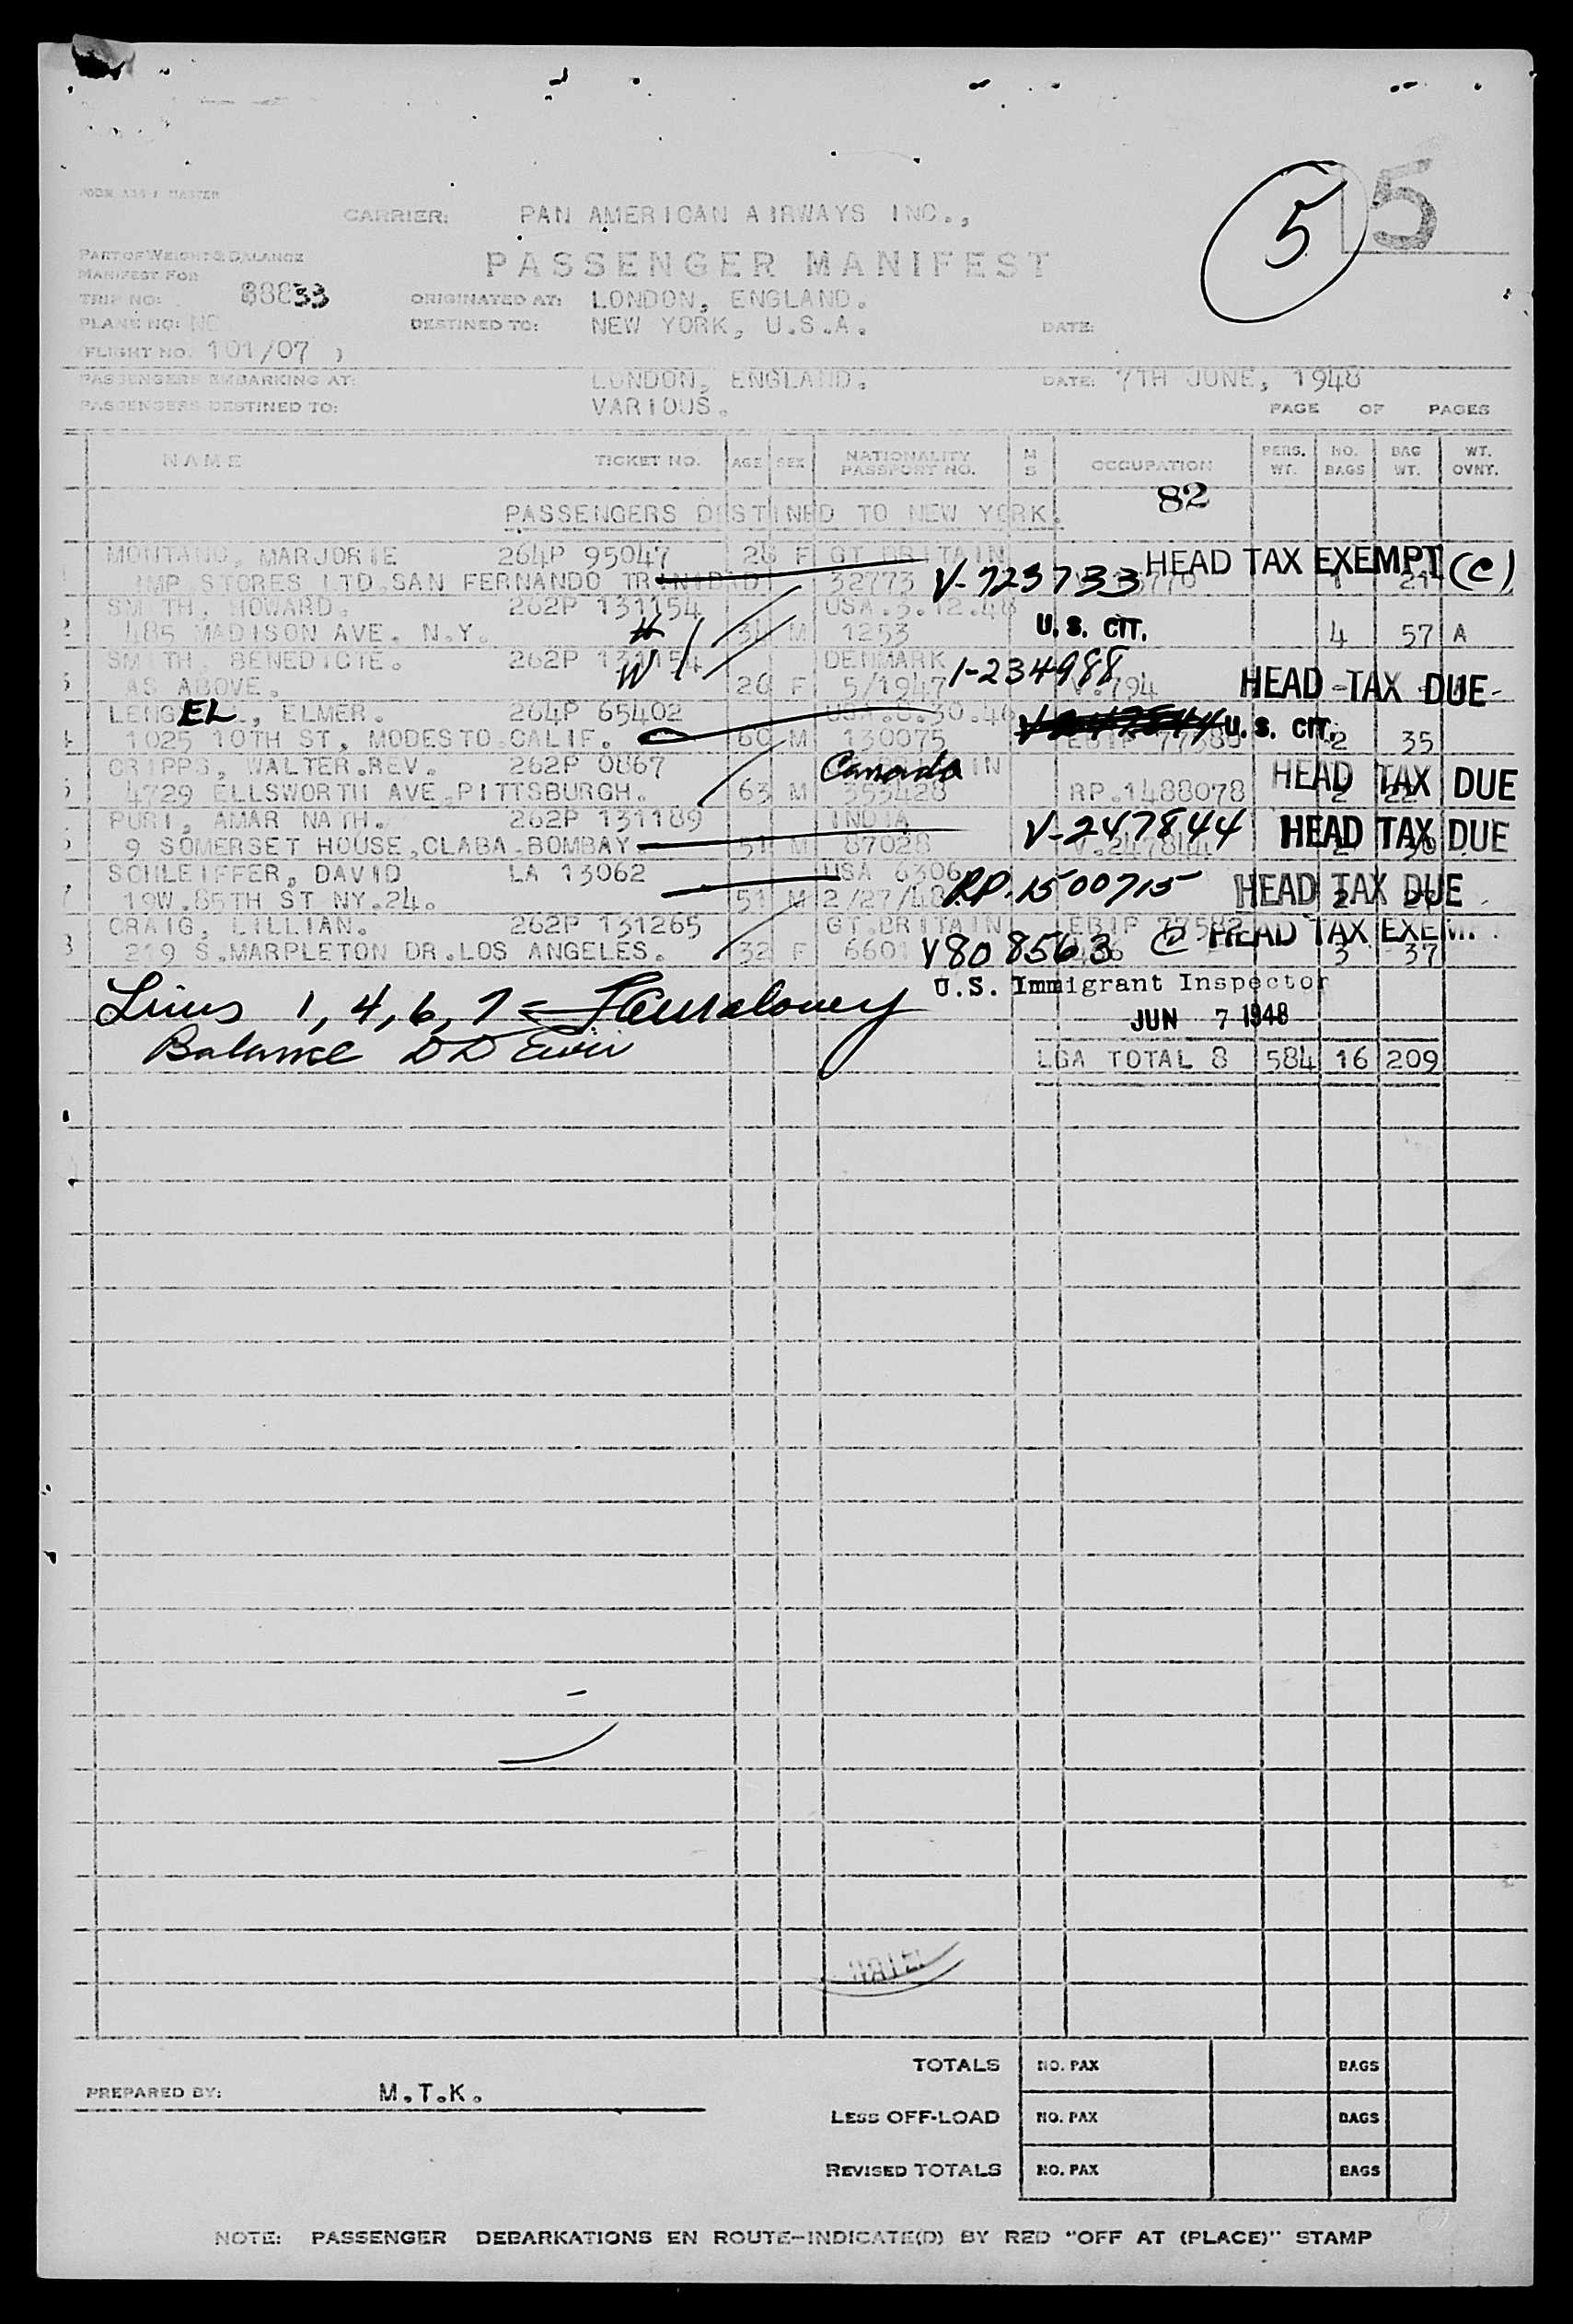 CARRIER: PAN AMERICAN AIRWAYS INC.,
5 15
PART OF WEIGHT & BALANCE
PASSENGER MANIFEST
MANIFEST FOR
TRIP NO: 88833 ORIGINATED AT: LONDON, ENGLAND.
PLANE NO: NC DESTINED TO: NEW YORK, U.S.A. DATE:
(FLIGHT NO. 101/07 )
PASSENGERS EMBARKING AT: LONDON, ENGLAND. DATE: 7TH JUNE, 1948
PASSENGERS DESTINED TO: VARIOUS. PAGE OF PAGES
NAME TICKET NO. AGE SEX NATIONALITY PASSPORT NO. M S OCCUPATION PERS. WT. NO. BAGS BAG WT. WT. OVNT.
82
PASSENGERS DESTINED TO NEW YORK.
MONTANO, MARJORIE 264P 95047 28 F GT BRITAIN HEAD TAX EXEMPT (C)
IMP STORES LTD SAN FERNANDO TRINIDAD 32773 V-723733 1 21
SMITH, HOWARD. 262P 131154 USA.3.12.48
2 485 MADISON AVE. N.Y. H 34 M 1253 U.S. CIT. 4 57 A
SMITH, BENEDICTE. 262P 131154 DENMARK 1-234988
AS ABOVE. W 26 F 5/1947 V.794 HEAD TAX DUE
LENGEL, ELMER. 264P 65402 U.S. CIT.
4 1025 10TH ST. MODESTO.CALIF. 60 M 130075 EBIP 2 35
CRIPPS, WALTER.REV. 262P 0867 Canada HEAD TAX DUE
4729 ELLSWORTH AVE.PITTSBURGH. 63 M 353428 RP.1488078 2 22
PURI, AMAR NATH. 262P 131189 INDIA V-247844 HEAD TAX DUE
9 SOMERSET HOUSE,CLABA.BOMBAY. 51 M 87028 V.247844
SCHLEIFFER, DAVID LA 13062 USA 6306 R.P. 1500715 HEAD TAX DUE
7 19W.85TH ST NY.24. 51 M 2/27/48
CRAIG, LILLIAN. 262P 131265 GT.BRITAIN EBIP 77582 C HEAD TAX EXEMPT
219 S.MARPLETON DR.LOS ANGELES. 32 F 6601 V808563 3 37
Lines 1, 4, 6, 7 =
U.S. Immigrant Inspector
JUN 7 1948
Balance
LGA TOTAL 8 584 16 209
TOTALS NO. PAX BAGS
PREPARED BY: M.T.K.
LESS OFF-LOAD NO. PAX BAGS
REVISED TOTALS NO. PAX BAGS
NOTE: PASSENGER DEBARKATIONS EN ROUTE-INDICATE(D) BY RED "OFF AT (PLACE)" STAMP